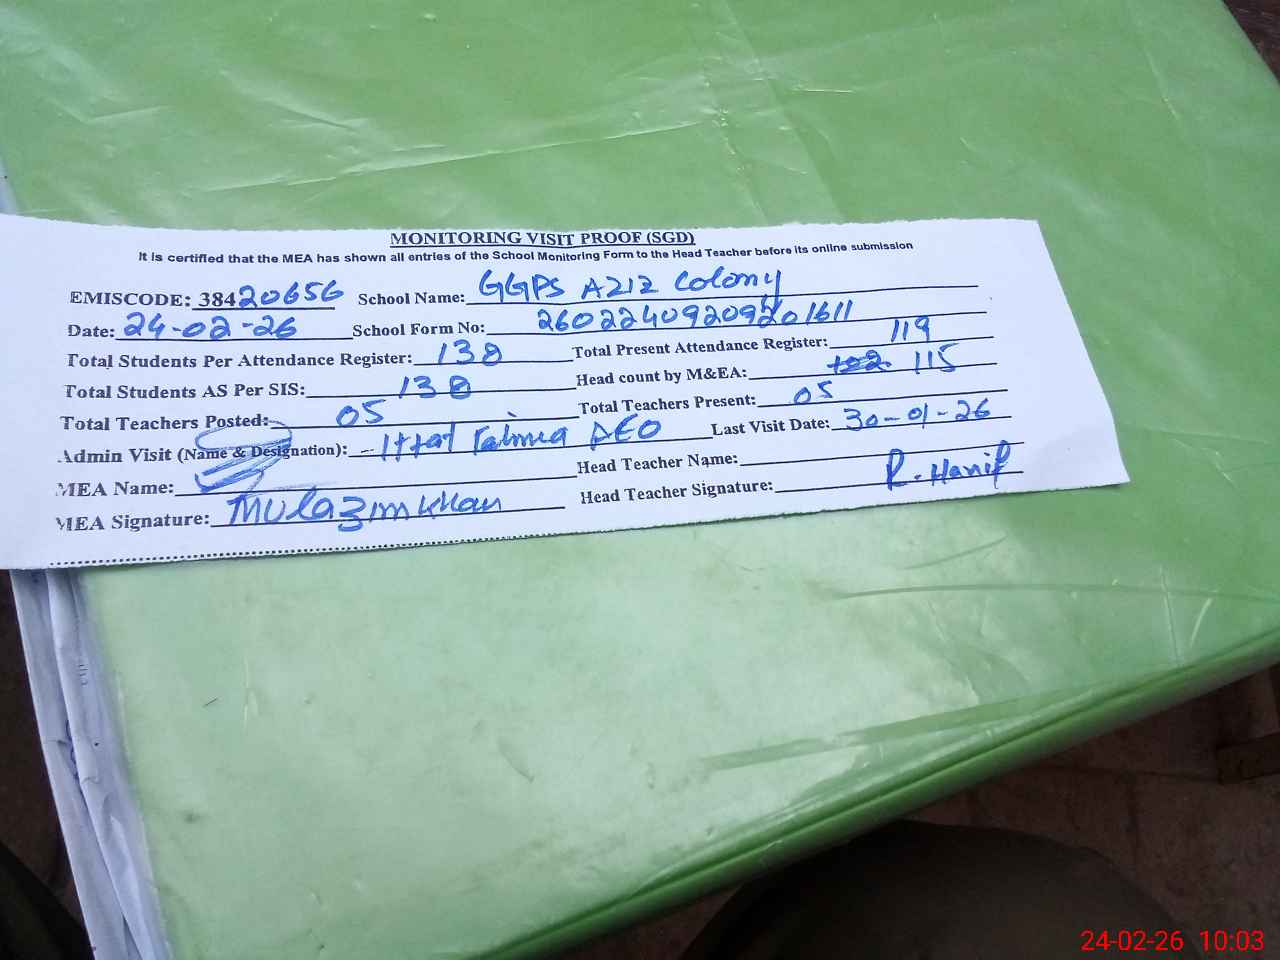 MONITORING VISIT PROOF (SGD)
It is certified that the MEA has shown all entries of the School Monitoring Form to the Head Teacher before its online submission
EMISCODE: 38420656 School Name: GGPS AZIZ Colony
Date: 24-02-26 School Form No:
Total Students Per Attendance Register: 138 Total Present Attendance Register: 119
Total Students AS Per SIS: 138 Head count by M&EA: 115
Total Teachers Posted: 05 Total Teachers Present: 05
Admin Visit (Name & Designation): AEO Last Visit Date: 30-01-26
MEA Name: Head Teacher Name:
MEA Signature: Mulazim Khan Head Teacher Signature: R. Hanif
24-02-26 10:03